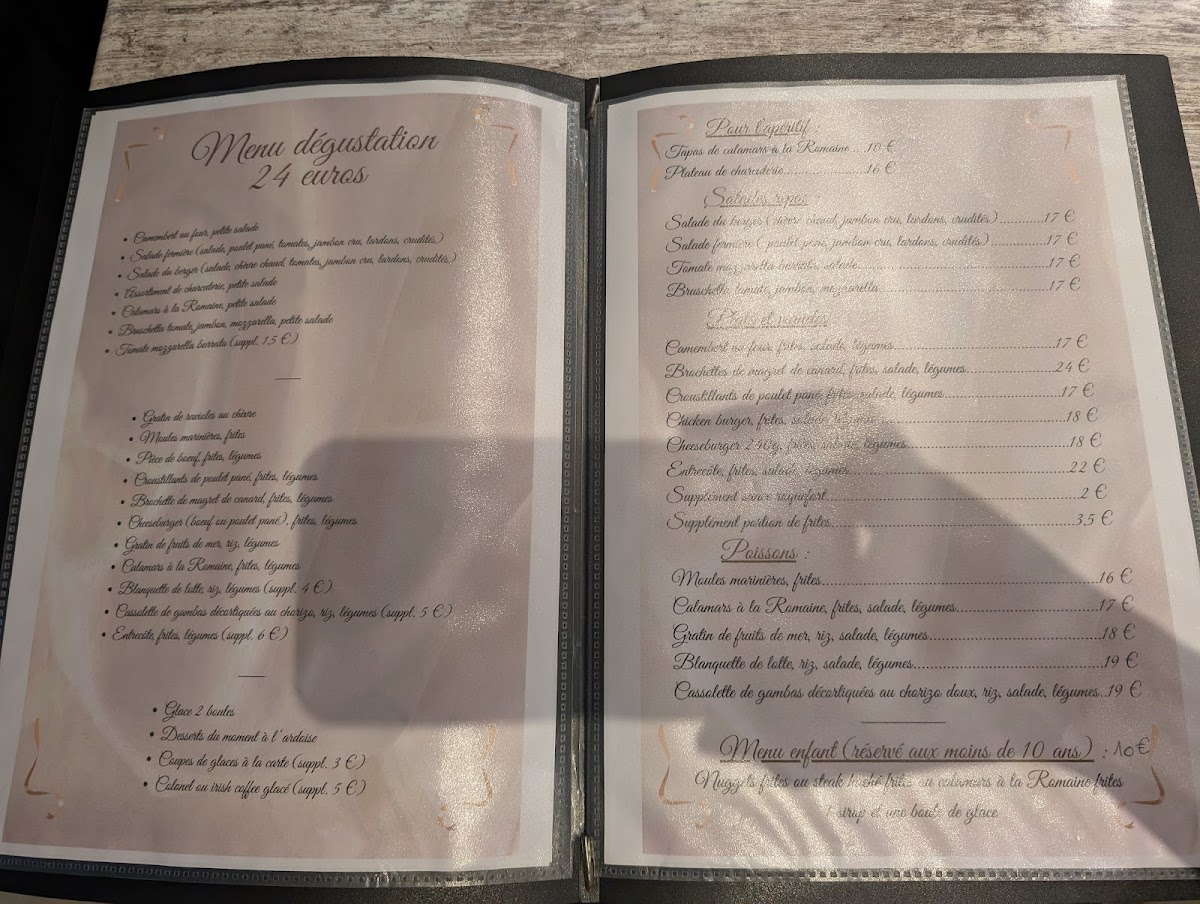 Menu dégustation
24 euros
• Camembert au four, petite salade
• Salade fermière (salade, poulet pané, tomates, jambon cru, lardons, crudités)
• Salade du berger (salade, chèvre chaud, tomates, jambon cru, lardons, crudités)
• Assortiment de charcuterie, petite salade
• Calamars à la Romaine, petite salade
• Bruschetta tomate, jambon, mozzarella, petite salade
• Tomate mozzarella burrata (suppl. 1,5 €)
• Gratin de ravioles au chèvre
• Moules marinières, frites
• Pièce de boeuf, frites, légumes
• Croustillants de poulet pané, frites, légumes
• Brochette de magret de canard, frites, légumes
• Cheeseburger (boeuf ou poulet pané), frites, légumes
• Gratin de fruits de mer, riz, légumes
• Calamars à la Romaine, frites, légumes
• Blanquette de lotte, riz, légumes (suppl. 4 €)
• Cassolette de gambas décortiquées au chorizo, riz, légumes (suppl. 5 €)
• Entrecôte, frites, légumes (suppl. 6 €)
• Glace 2 boules
• Desserts du moment à l'ardoise
• Coupes de glaces à la carte (suppl. 3 €)
• Colonel ou irish coffee glacé (suppl. 5 €)
Pour l'apéritif :
Tapas de calamars à la Romaine....10 €
Plateau de charcuterie....................16 €
Salades repas :
Salade du burger (chèvre chaud, jambon cru, lardons, crudités)...........17 €
Salade fermière ( poulet pané, jambon cru, lardons, crudités)..............17 €
Tomate mozzarella burrata, salade..............................................17 €
Bruschetta tomate, jambon, mozzarella..........................................17 €
Plats et viandes
Camembert au four, frites, salade, légumes.......................................17 €
Brochettes de magret de canard, frites, salade, légumes......................24 €
Croustillants de poulet pané, frites, salade, légumes...........................17 €
Chicken burger, frites, salade, légumes.............................................18 €
Cheeseburger 240g, frites, salade, légumes.......................................18 €
Entrecôte, frites, salade, légumes.....................................................22 €
Supplément sauce roquefort............................................................2 €
Supplément portion de frites...........................................................3,5 €
Poissons :
Moules marinières, frites.................................................................16 €
Calamars à la Romaine, frites, salade, légumes..................................17 €
Gratin de fruits de mer, riz, salade, légumes.......................................18 €
Blanquette de lotte, riz, salade, légumes............................................19 €
Cassolette de gambas décortiquées au chorizo doux, riz, salade, légumes..19 €
Menu enfant (réservé aux moins de 10 ans) : 10€
Nuggets frites ou steak haché frites ou calamars à la Romaine frites
1 sirop et une boule de glace